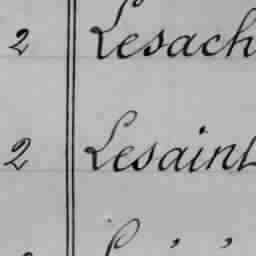 2 Lesach
2 Lesaint